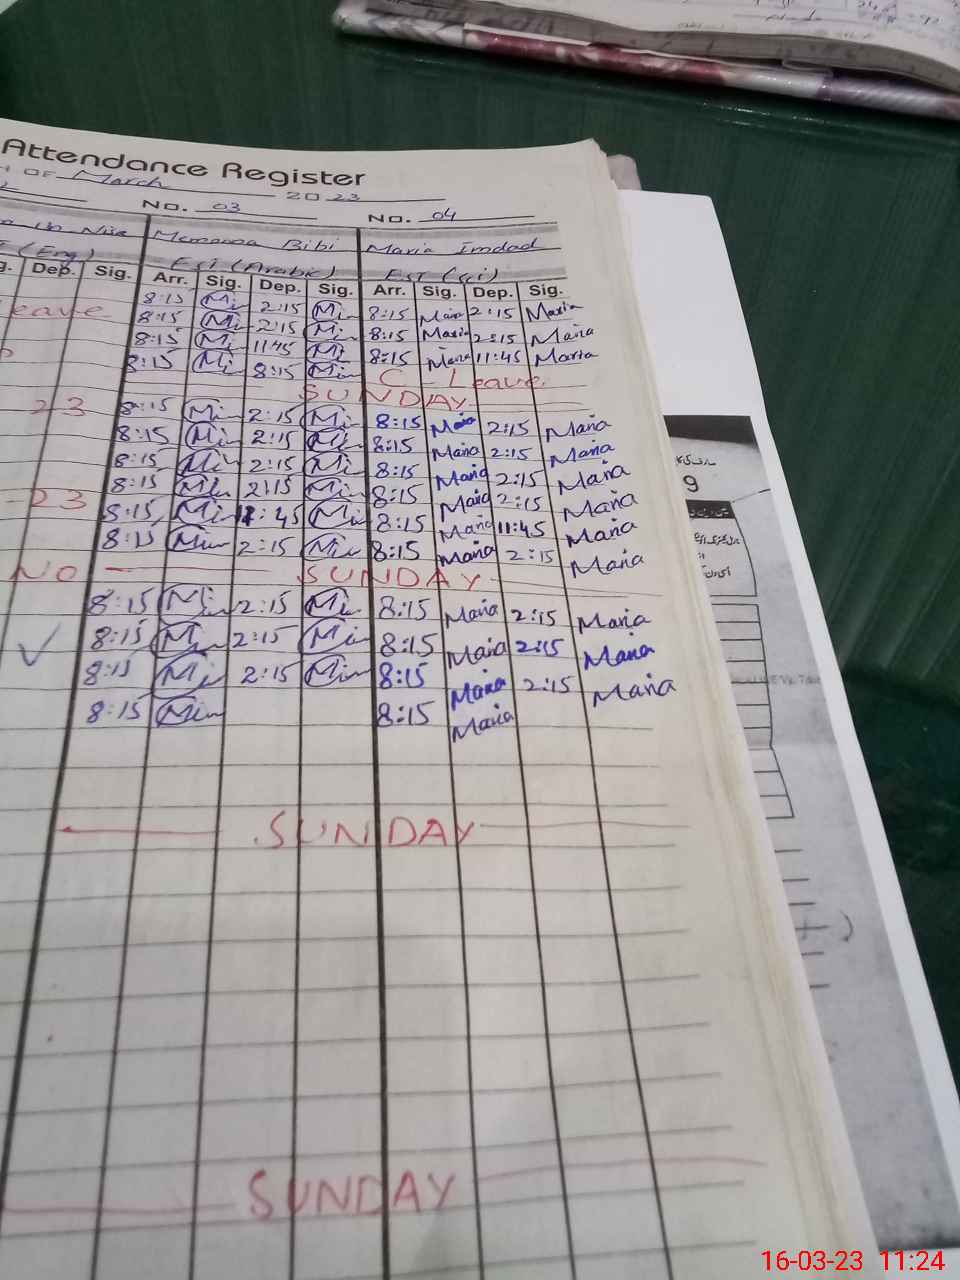 Attendance Register
OF March 2023
No. 03 No. 04
Memoona Bibi Maria Imdad
(Eng) EST (Arabic) EST (Sci)
Dep. Sig. Arr. Sig. Dep. Sig. Arr. Sig. Dep. Sig.
Leave 8:15 Min 2:15 Min 8:15 Maria 2:15 Maria
8:15 Min 2:15 Min 8:15 Maria 2:15 Maria
8:15 Min 11:45 Min 8:15 Maria 11:45 Maria
8:15 Min 8:15 Min C - Leave.
SUNDAY
23 8:15 Min 2:15 Min 8:15 Maria 2:15 Maria
8:15 Min 2:15 Min 8:15 Maria 2:15 Maria
8:15 Min 2:15 Min 8:15 Maria 2:15 Maria
23 8:15 Min 2:15 Min 8:15 Maria 2:15 Maria
8:15 Min 11:45 Min 8:15 Maria 11:45 Maria
8:15 Min 2:15 Min 8:15 Maria 2:15 Maria
NO - SUNDAY
8:15 Min 2:15 Min 8:15 Maria 2:15 Maria
8:15 Min 2:15 Min 8:15 Maria 2:15 Maria
8:15 Min 2:15 Min 8:15 Maria 2:15 Maria
8:15 Min 8:15 Maria
SUNDAY
SUNDAY
9
16-03-23 11:24